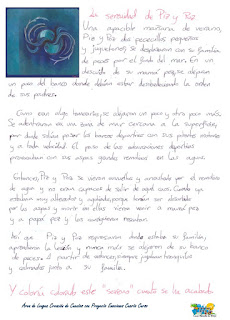 La serenidad de Pir y Paz
Una apacible mañana de verano,
Pir y Paz dos pececillos pequeños
y juguetones, se desplazaron con su familia
de peces por el fondo del mar. En un
descuido de su mamá pez, se alejaron
un poco del banco donde debían estar desobedeciendo la orden
de sus padres.
Como eran algo traviesillos, se alejaron un poco y otro poco más.
Se adentraron en una zona de mar cercana a la superficie,
por donde solían pasar los barcos deportivos con sus potentes motores
y a toda velocidad. El paso de las embarcaciones deportivas
provocaban con sus aspas grandes remolinos en las aguas.
Entonces, Pir y Paz se vieron envueltos y arrastrados por el remolino
de agua y no eran capaces de salir de aquel caos. Cuando ya
estaban muy alterados y agotados, porque temían ser absorbidos
por las aguas y morir en ellas vieron venir a mamá pez
y a papá pez y los ayudaron
Así que Pir y Paz regresaron donde estaba su familia,
aprendieron la lección y nunca más se alejaron de su banco
de peces. A partir de entonces, siempre jugaban tranquilos
y calmados junto a su familia.
Y colorín colorado este "sereno" cuento se ha acabado
Área de Lengua Creación de Cuentos con Proyecto Emociona Cuarto Curso